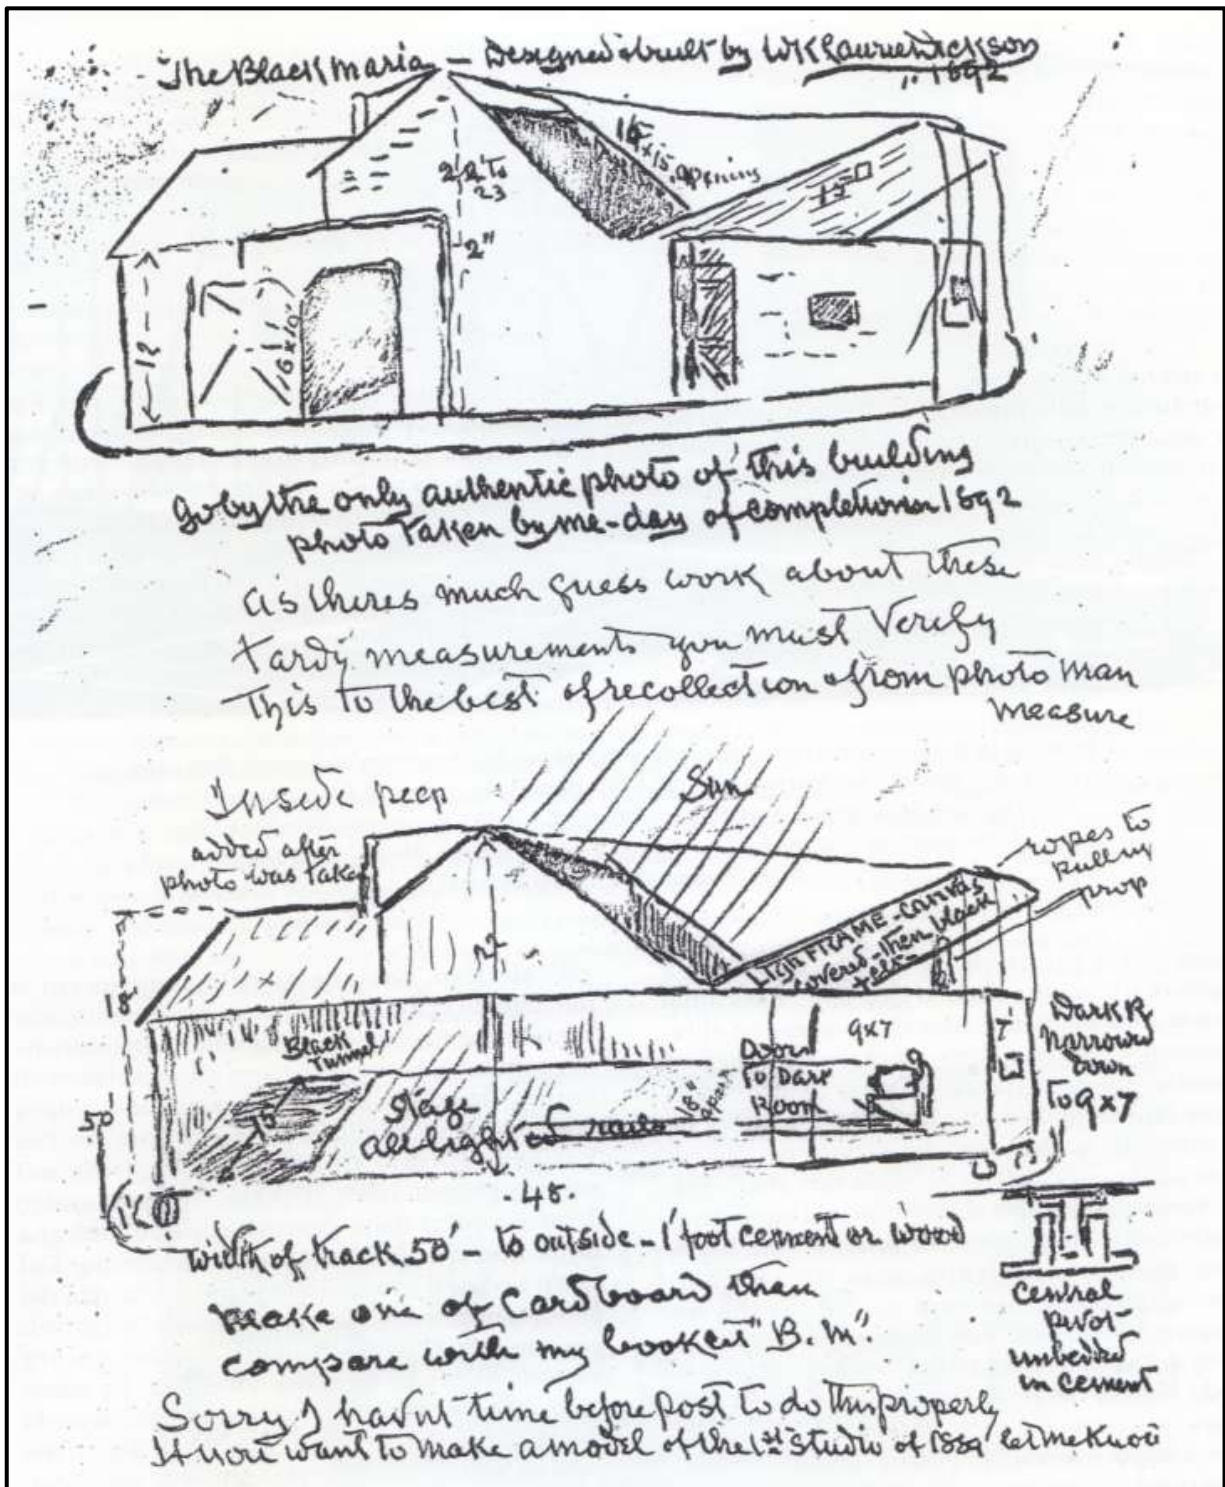 The Black Maria – Designed & built by WKLaurieDickson
,, 1892
22 to
23
15 x 15 opening
2"
12
6 x 10
go by the only authentic photo of this building
photo taken by me – day of completion in 1892
as theres much guess work about these
tardy measurements you must verify
This to the best of recollection & from photo man
measure
Inside peep
Sun
added after
photo was taken
ropes to
pull up
prop
ligh FRAME – Canvas
covered – then black
felt
18
22
Black
Tunnel
Door
To Dark
Room
9x7
7
Dark R
narrowed
down
to 9x7
15
stage
all light
rails
18"
apart
50
.48.
width of track 50' – to outside – 1' foot cement or wood
Make one of Cardboard then
compare with my booklet "B.M".
central
pivot
imbedded
in cement
Sorry I havnt time before post to do this properly
If you want to make a model of the 1st studio of 1889 let me know